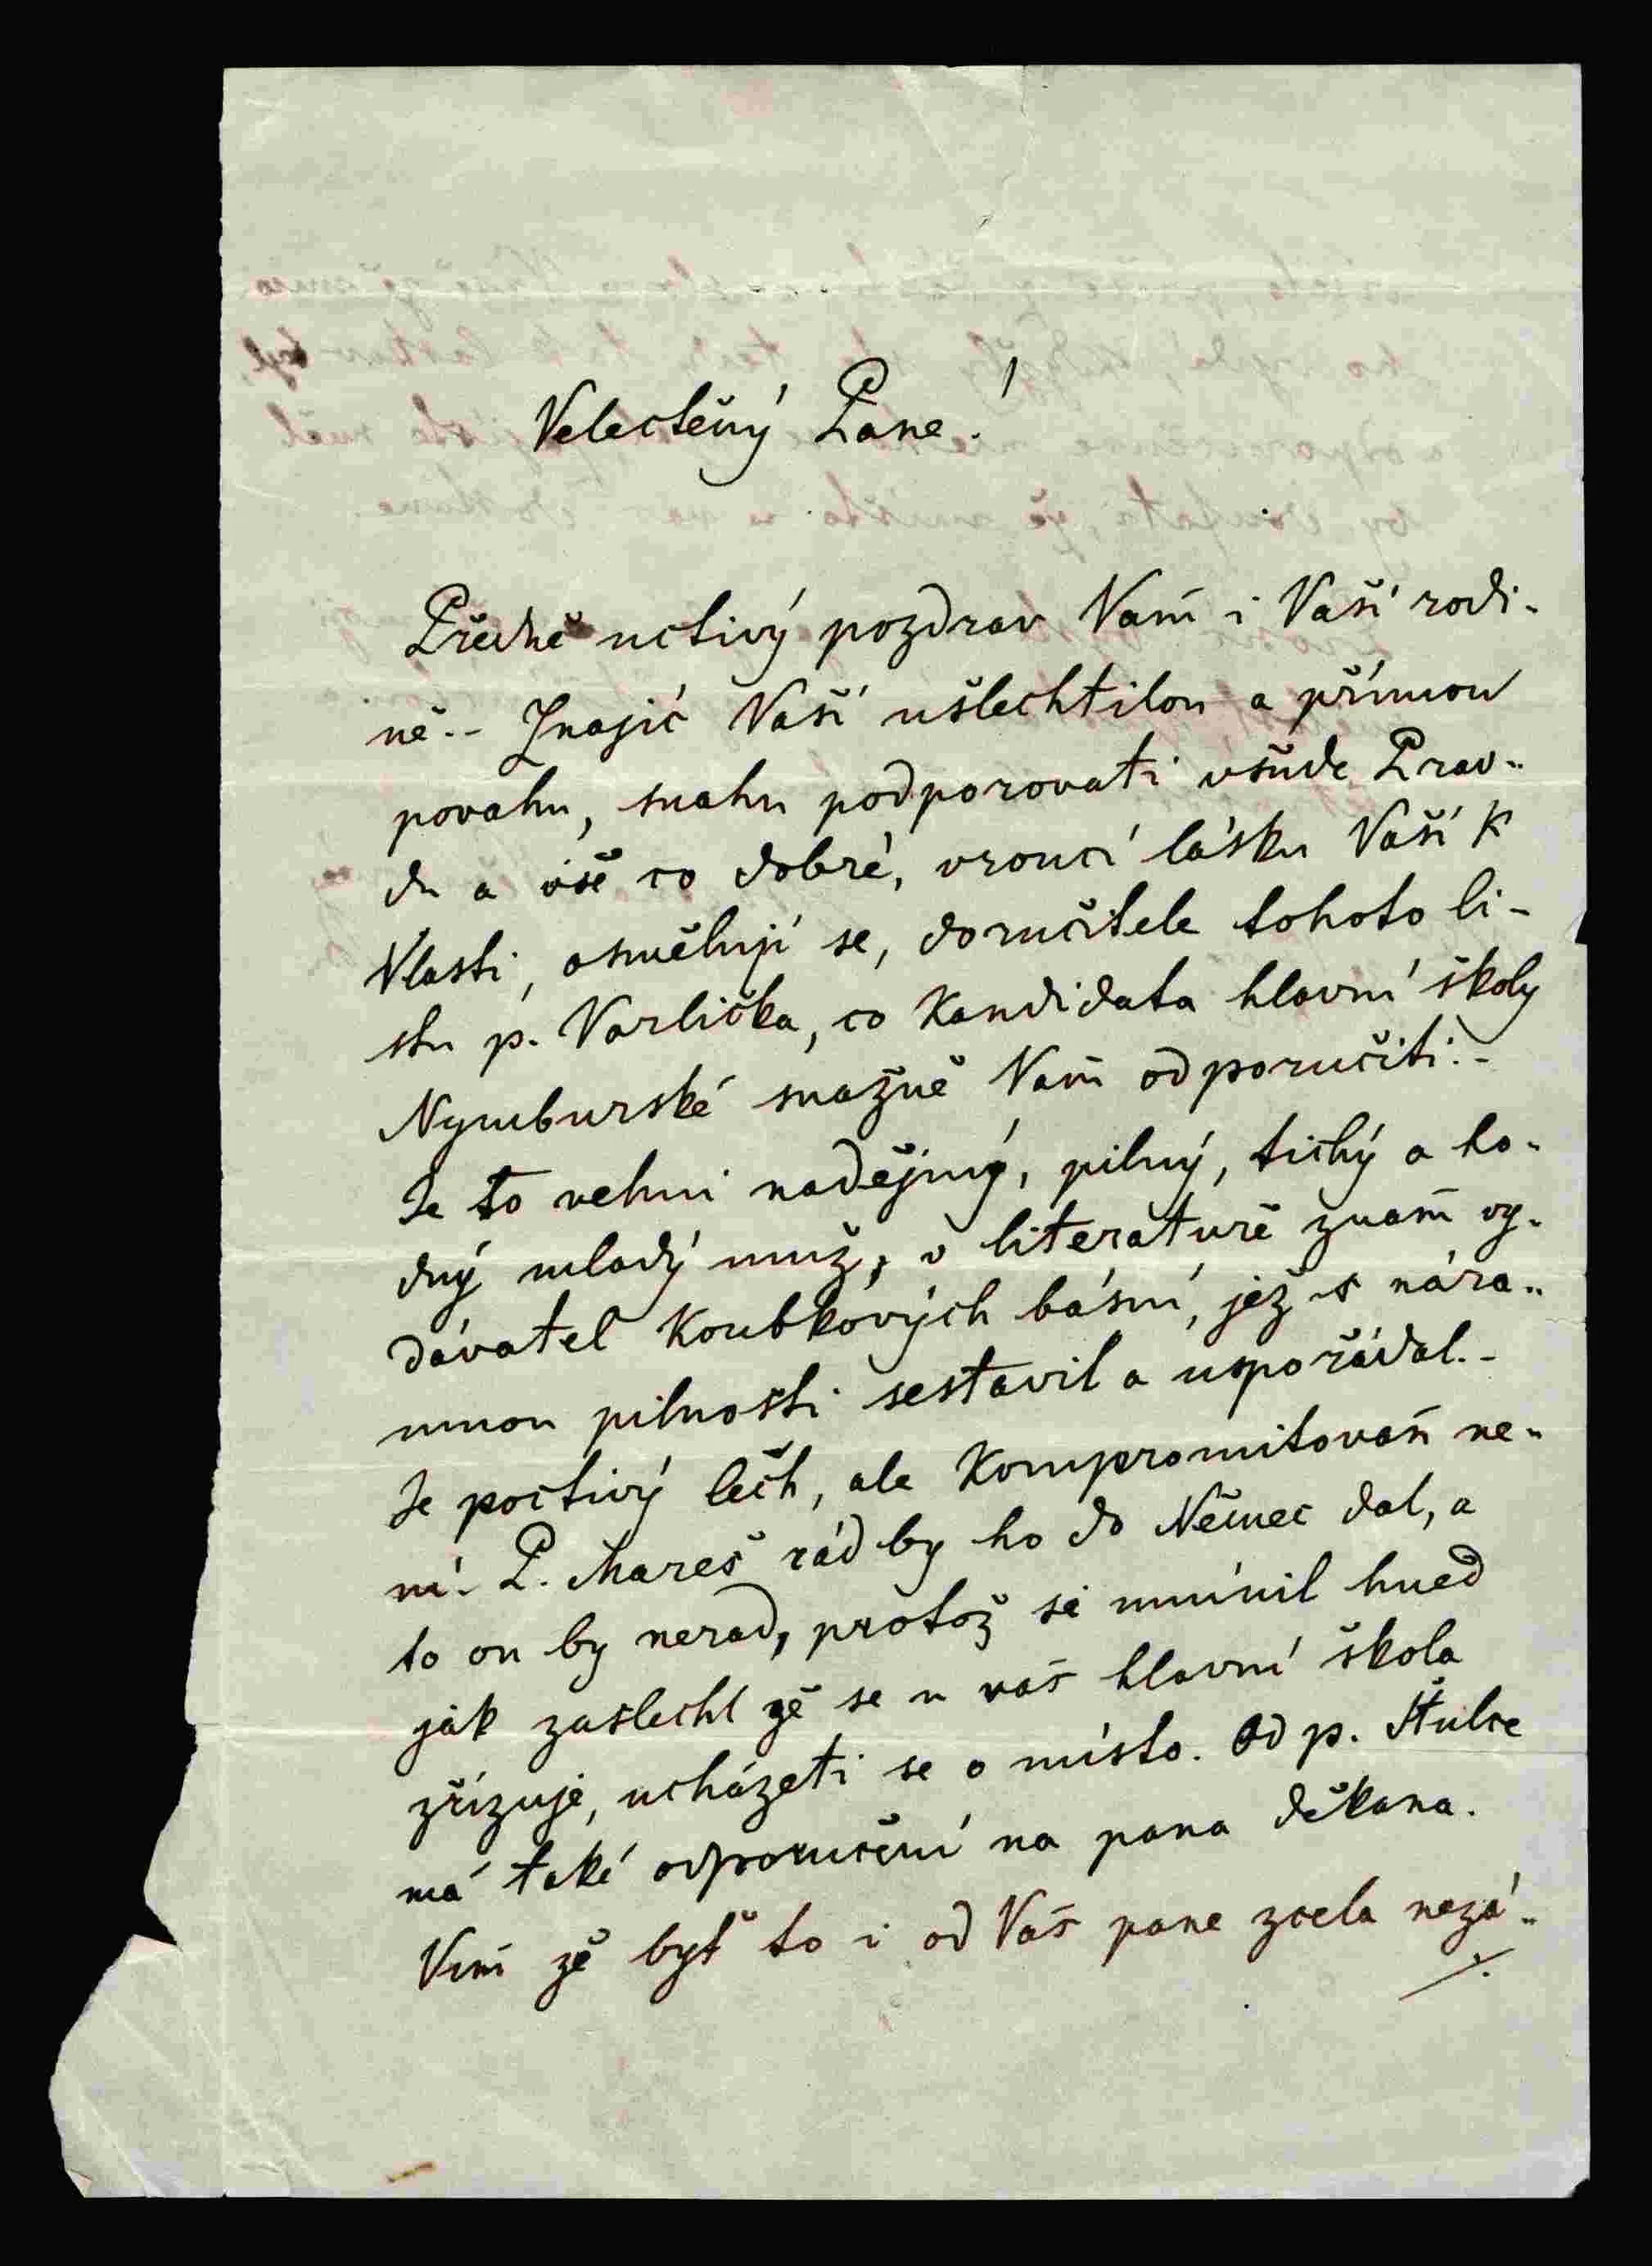 Velectěný Pane!
Předně uctivý pozdrav Vam i Vaší rodi-
ně.- Znajíc Vaší ušlechtilou a přímou
povahu, snahu podporovati všude Prav-
du a vše co dobré, vroucí lásku Vaší k
Vlasti, osmělují se, doručitele tohoto li-
stu p. Vorlička, co Kandidata hlavní školy
Nymburské snažně Vam odporučiti.-
Je to velmi nadějný, pilný, tichý a ho-
dný mladý muž, v literatuře znam vy-
davatel Koubkových básní, jež s nára-
mnou pilností sestavil a uspořádal.-
Je poctivý Čech, ale Kompromitovań ne-
ní. P. Mareš rád by ho do Němec dal, a
to on by nerad, protož si umínil hned
jak zaslechl že se u vás hlavní škola
zřizuje, ucházeti se o místo. Od p. Štulce
má také odporučení na pana děkana.
Vím že byť to i od Vás pane zcela nezá-
./.